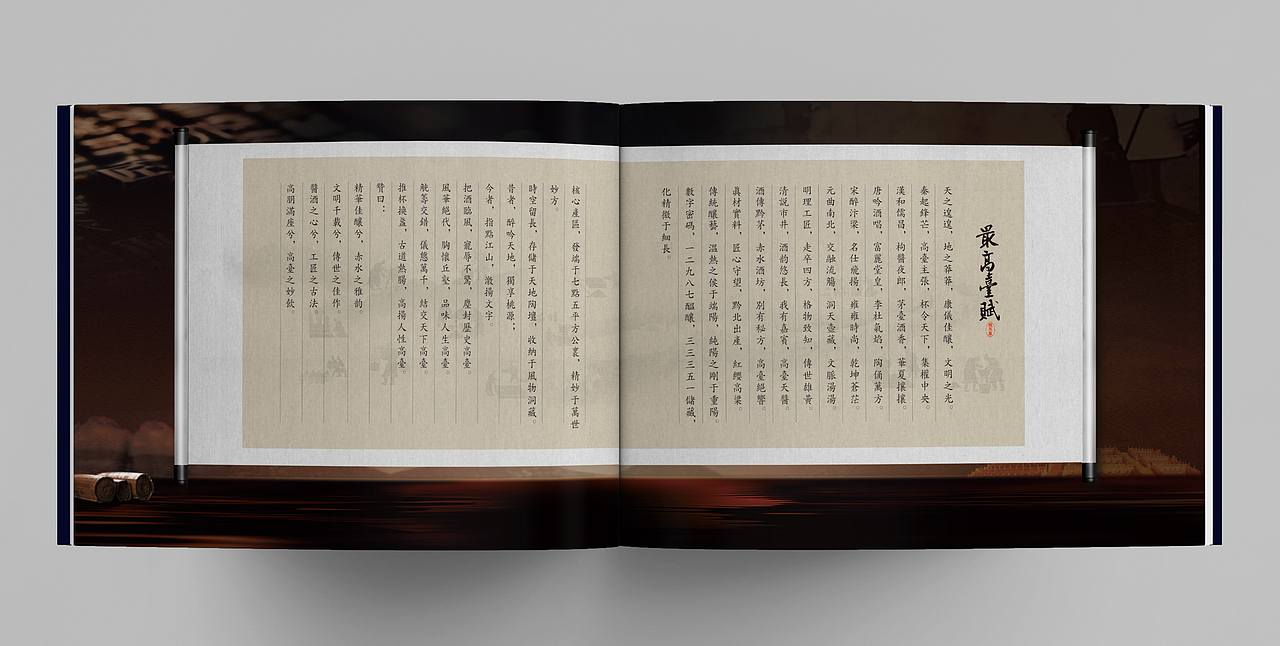 最高臺賦
天之遑遑，地之莽莽，康儀佳釀，文明之光。
秦起鋒芒，高臺主張，杯令天下，集權中央。
漢和儒昌，枸醬夜郎，茅臺酒香，華夏攘攘。
唐吟酒唱，富麗堂皇，李杜氣焰，陶俑萬方。
宋醉汴梁，名仕飛揚，雍雍時尚，乾坤蒼茫。
元曲南北，交融流觴，洞天壺藏，文脈湯湯。
明理工匠，走卒四方，格物致知，傳世雄黃。
清說市井，酒韵悠長，我有嘉賓，高臺天醬。
酒傳黔茅，赤水酒坊，別有秘方，高臺絕響。
真材實料，匠心守望，黔北出産，紅纓高粱。
傳統釀藝，溫熱之侯于端陽，純陽之剛于重陽。
數字密碼，一二九八七醞釀，三三三五一儲藏，
化精微于細長。
核心産區，發端于七點五平方公裏，精妙于萬世
妙方。
時空留長，存儲于天地陶壇，收納于風物洞藏。
昔者，醉吟天地，獨享桃源；
今者，指點江山，激揚文字。
把酒臨風，寵辱不驚，塵封歷史高臺。
風華絕代，胸懷丘壑，品味人生高臺。
觥籌交錯，儀態萬千，結交天下高臺。
推杯換盞，古道熱腸，高揚人性高臺。
贊曰：
精華佳釀兮，赤水之雅韵。
文明千載兮，傳世之佳作。
醬酒之心兮，工匠之古法。
高朋滿座兮，高臺之妙飲。